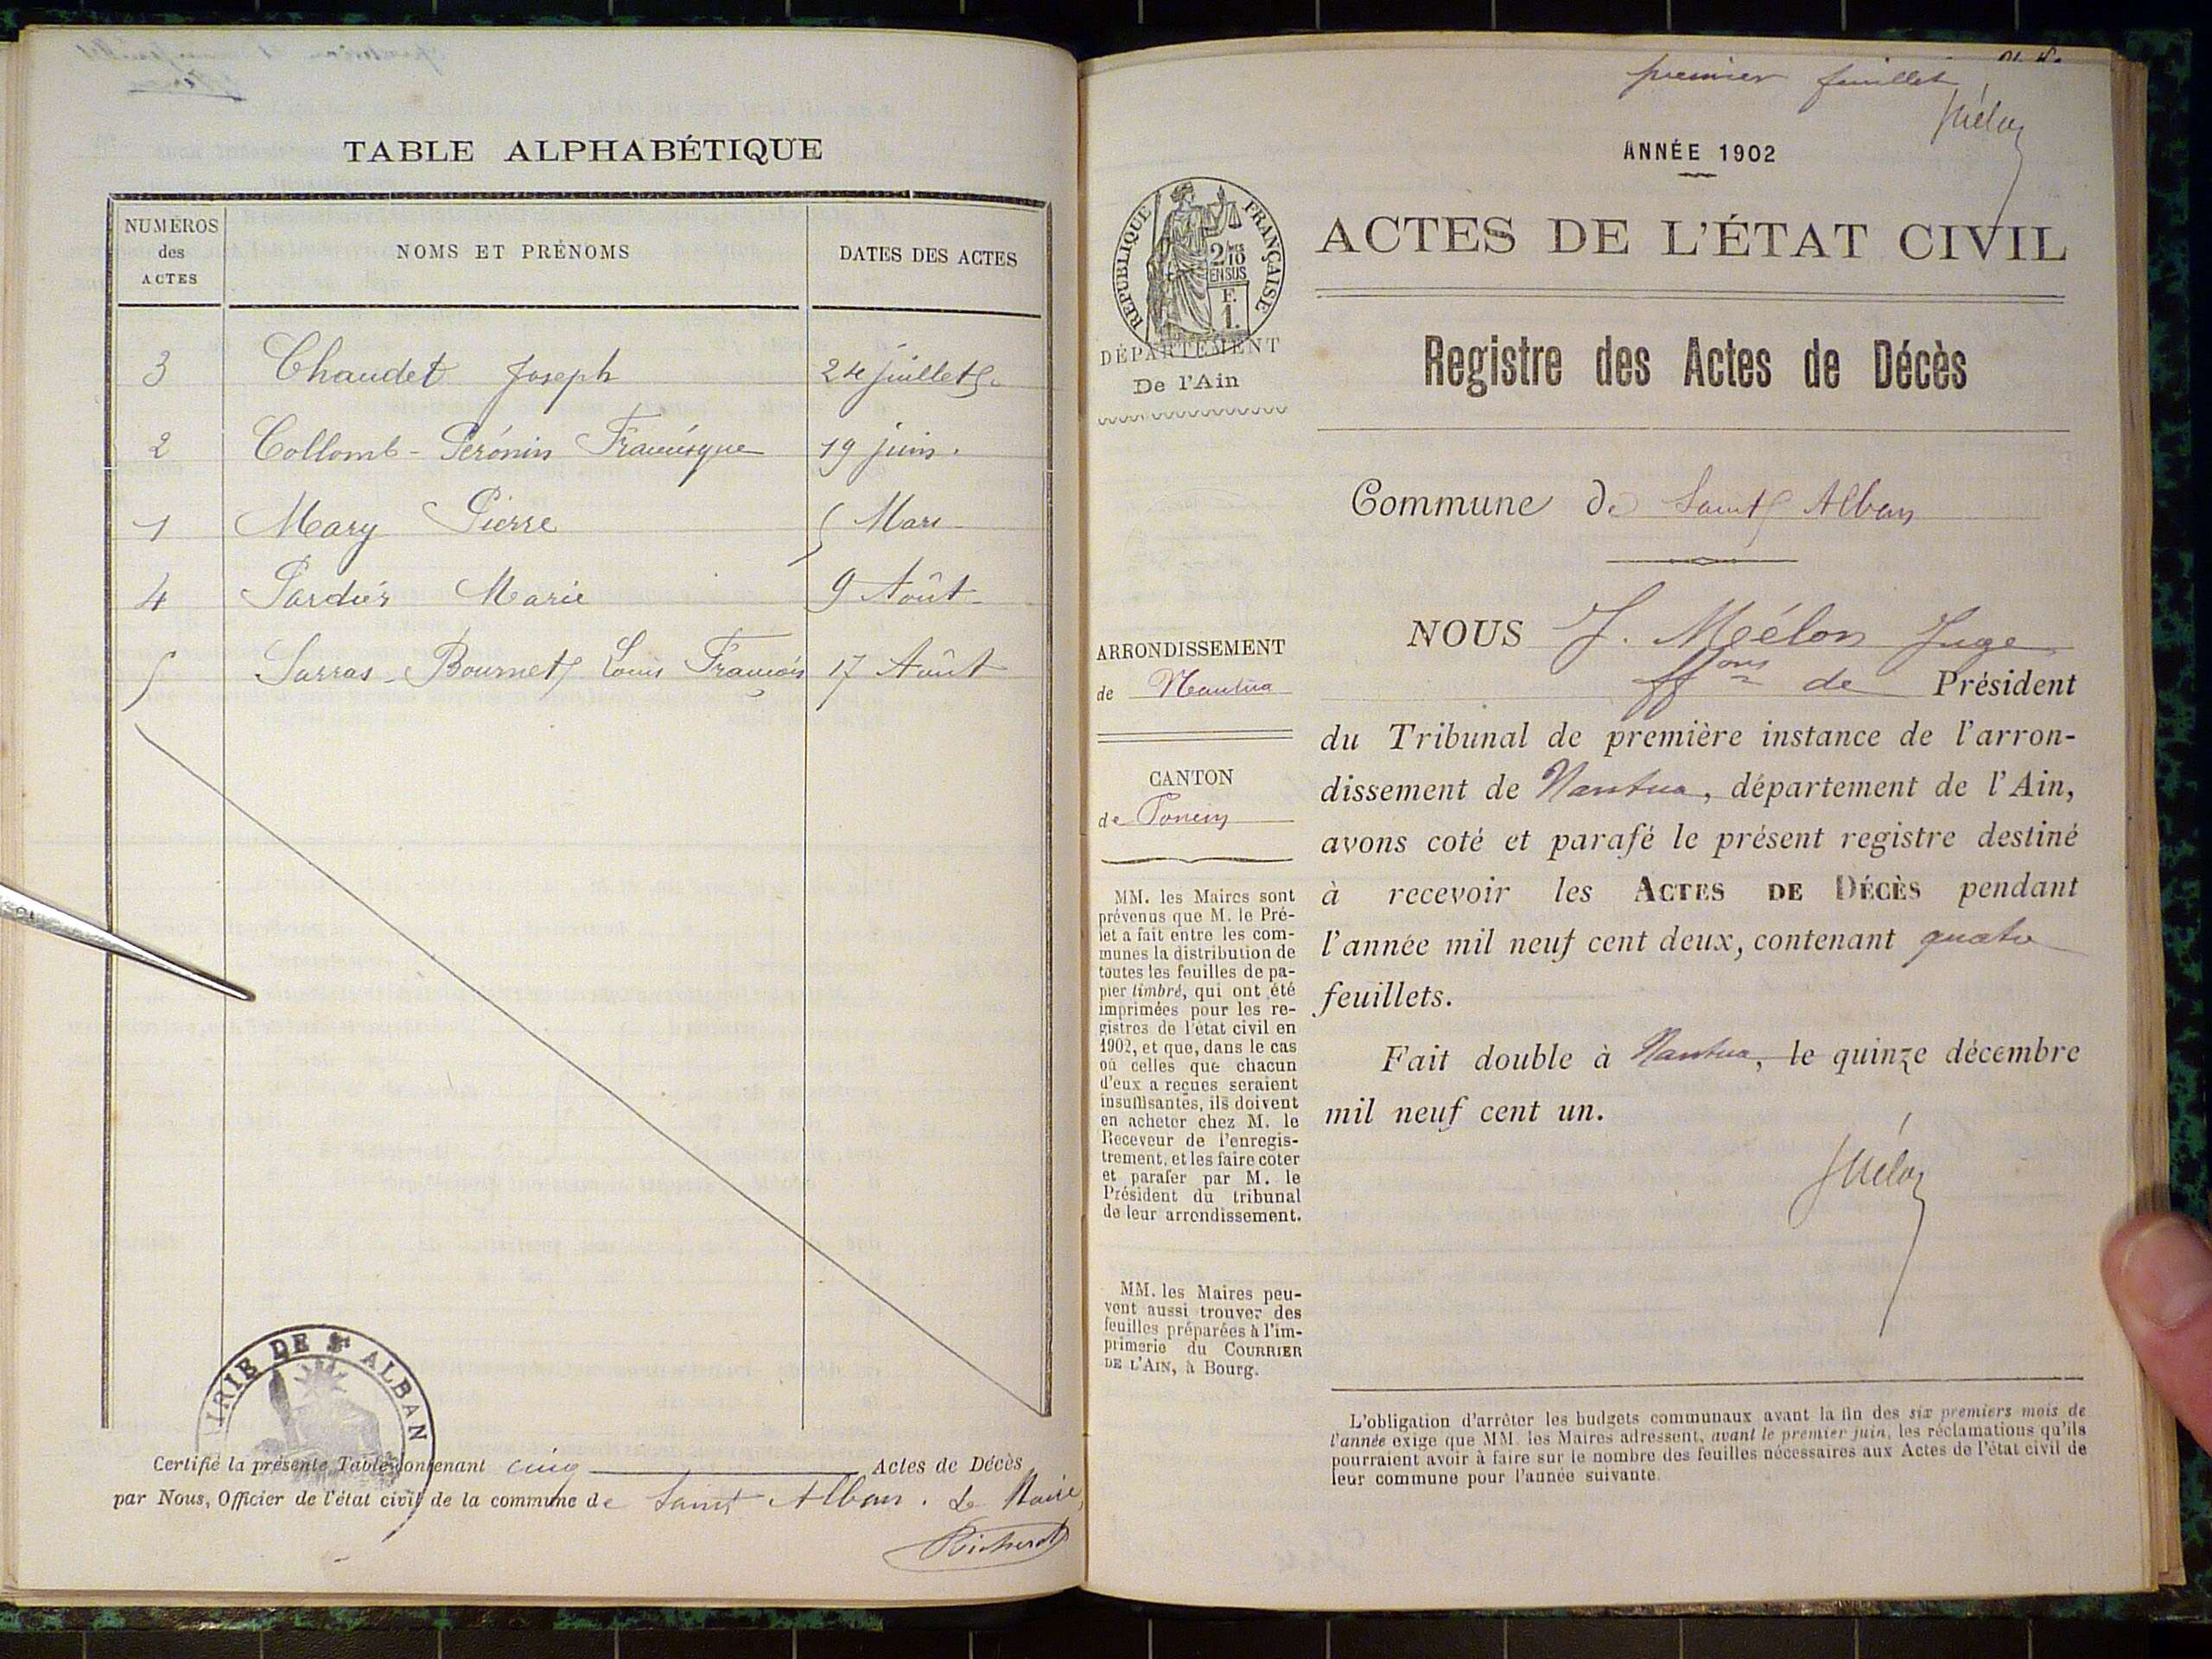 TABLE ALPHABÉTIQUE
NUMÉROS des ACTES
NOMS ET PRÉNOMS
DATES DES ACTES
3 Chaudet Joseph 24 juillet
2 Collomb - Perónin Francisque 19 juin.
1 Mary Pierre 5 Mars
4 Marie 9 Août
5 Sarras - Bournet Louis François 17 Août
MAIRIE DE St ALBAN
Certifié la présente Table contenant cinq Actes de Décès
par Nous, Officier de l'état civil de la commune de Saint Alban. Le Maire,
premier feuillet
Mélon
ANNÉE 1902
RÉPUBLIQUE FRANÇAISE
2/10 EN SUS
F. 1.
ACTES DE L'ÉTAT CIVIL
DÉPARTEMENT
De l'Ain
Registre des Actes de Décès
Commune de Saint Alban
ARRONDISSEMENT
de Nantua
CANTON
de Poncin
MM. les Maires sont
prévenus que M. le Pré-
fet a fait entre les com-
munes la distribution de
toutes les feuilles de pa-
pier timbré, qui ont été
imprimées pour les re-
gistres de l'état civil en
1902, et que, dans le cas
où celles que chacun
d'eux a reçues seraient
insuffisantes, ils doivent
en acheter chez M. le
Receveur de l'enregis-
trement, et les faire coter
et parafer par M. le
Président du tribunal
de leur arrondissement.
MM. les Maires peu-
vent aussi trouver des
feuilles préparées à l'im-
primerie du COURRIER
DE L'AIN, à Bourg.
NOUS J. Mélon Juge
ffons de Président
du Tribunal de première instance de l'arron-
dissement de Nantua, département de l'Ain,
avons coté et parafé le présent registre destiné
à recevoir les ACTES DE DÉCÈS pendant
l'année mil neuf cent deux, contenant quatre
feuillets.
Fait double à Nantua, le quinze décembre
mil neuf cent un.
Mélon
L'obligation d'arrêter les budgets communaux avant la fin des six premiers mois de
l'année exige que MM. les Maires adressent, avant le premier juin, les réclamations qu'ils
pourraient avoir à faire sur le nombre des feuilles nécessaires aux Actes de l'état civil de
leur commune pour l'année suivante.